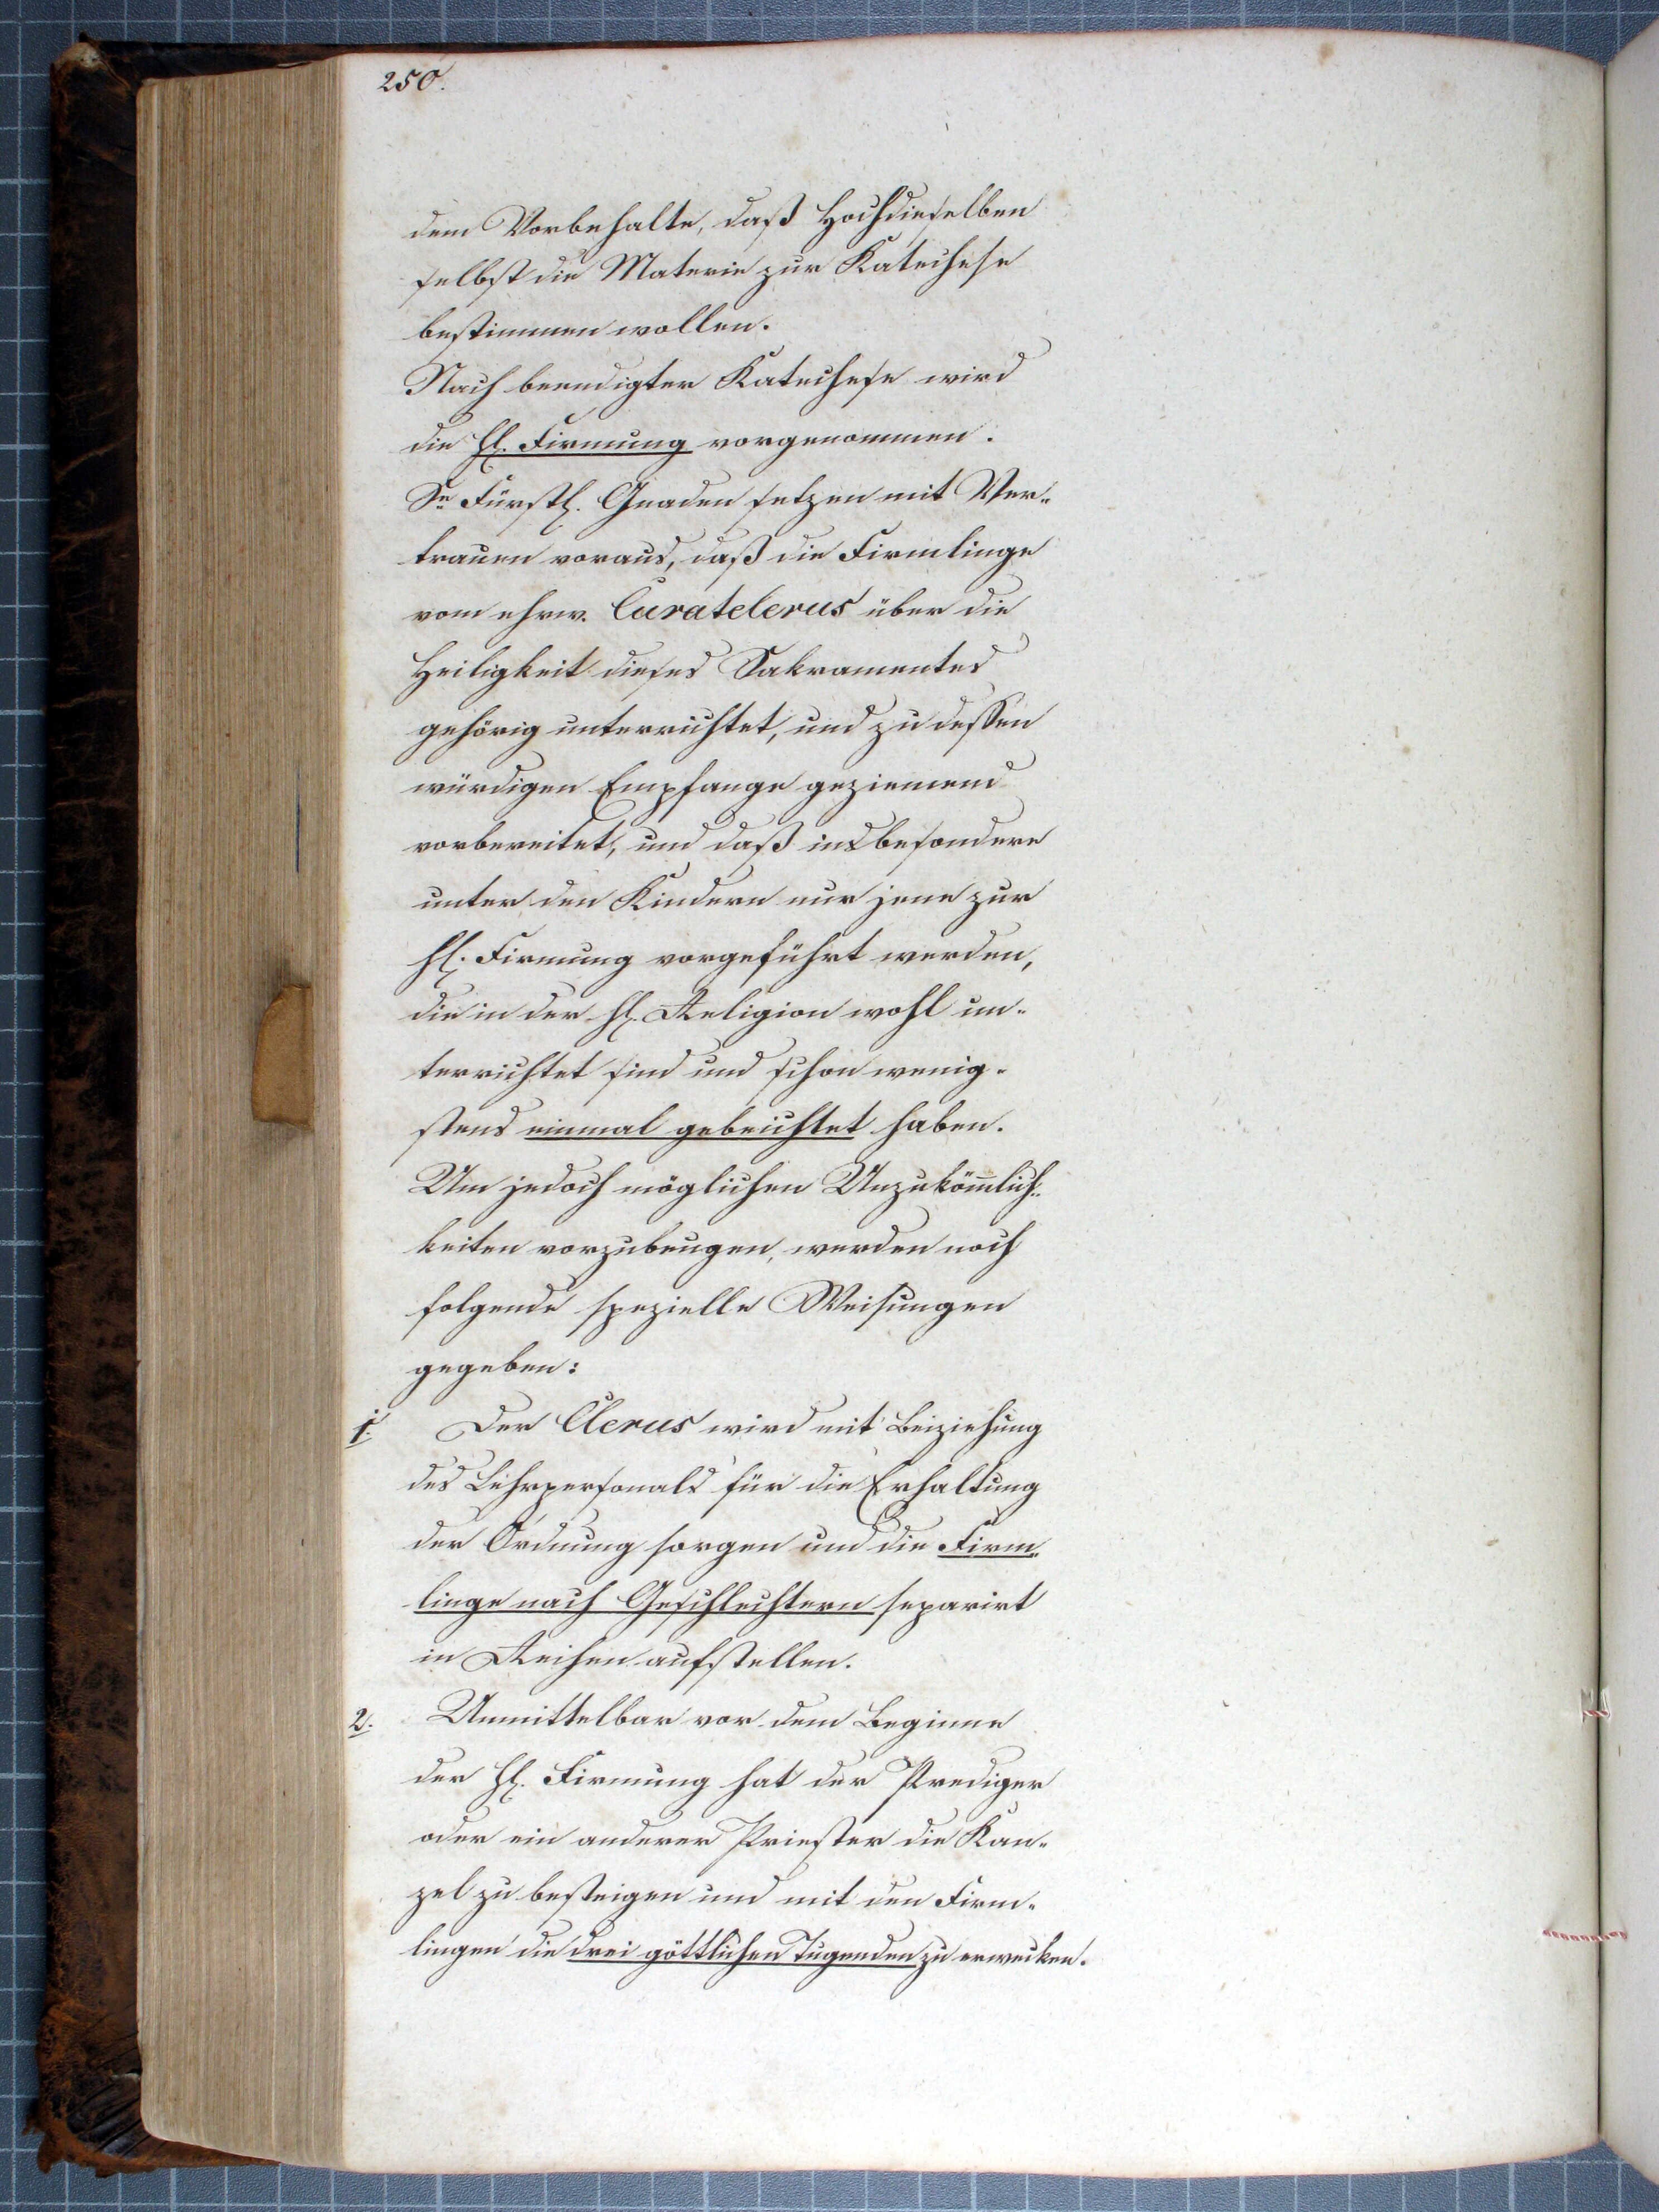 250.
dem Vorbehalte, daß Hochdieselben
selbst die Materie zur Katechese
bestimmen wollen.
Nach beendigter Katechese wird
die hl. Firmung vorgenommen.
Se Fürstl. Gnaden setzen mit Ver-
trauen voraus, daß die Firmlinge
vom ehrw. Curatclerus über die
Heiligkeit dieses Sakramentes
gehörig unterrichtet, und zu dessen
würdigen Empfange geziemend
vorbereitet, und daß insbesondere
unter den Kindern nur jene zur
hl. Firmung vorgeführt werden,
die in der hl. Religion wohl un-
terrichtet sind und schon wenig-
stens einmal gebeichtet haben.
Um jedoch möglichen Unzukömlich-
keiten vorzubeugen, werden noch
folgende spezielle Weisungen
gegeben:
1. Der Clerus wird mit Beiziehung
des Lehrpersonals für die Erhaltung
der Ordnung sorgen und die Firm-
linge nach Geschlechtern separirt
in Reihen aufstellen.
2. Unmittelbar vor dem Beginne
der hl. Firmung hat der Prediger
oder ein anderer Priester die Kan-
zel zu besteigen und mit den Firm-
lingen die drei göttlichen Tugenden zu erwecken.